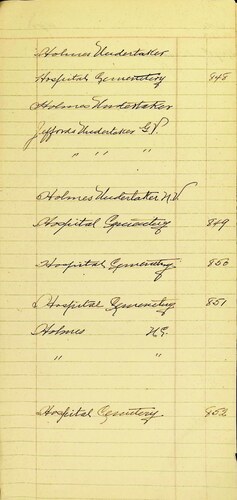 Holmes Undertaker
Hospital Cementery 848
Holmes Undertaker
Jeffords Undertaker G.P.
" " "
Holmes Undertaker N.W
Hospital Cementery 849
Hospital Cementry 850
Hospital Cementery 851
Holmes N.G.
" "
Hospital Cemntery 852